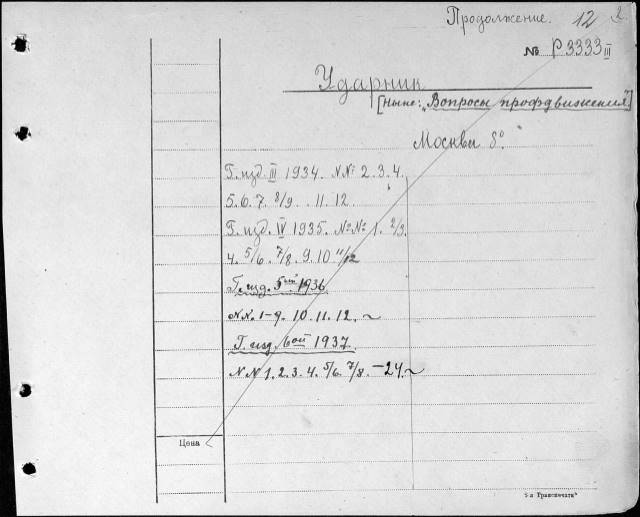 Продолжение. 12 2.
№ Р3333 III
Ударник
[Ныне: „Вопросы профдвижения"]
Москва 8º.
Г. изд. III 1934. №№ 2. 3. 4.
5. 6. 7. 8/9. 11. 12.
Г. изд. IV 1935. №№ 1. 2/3.
4. 5/6. 7/8. 9. 10 11/12
Г. изд. 5ый 1936
№№. 1-9. 10. 11. 12. ~
Г. изд. 6ой 1937.
№№ 1. 2. 3. 4. 5/6. 7/8. — 24. ~
Цена
5-я Транспечати